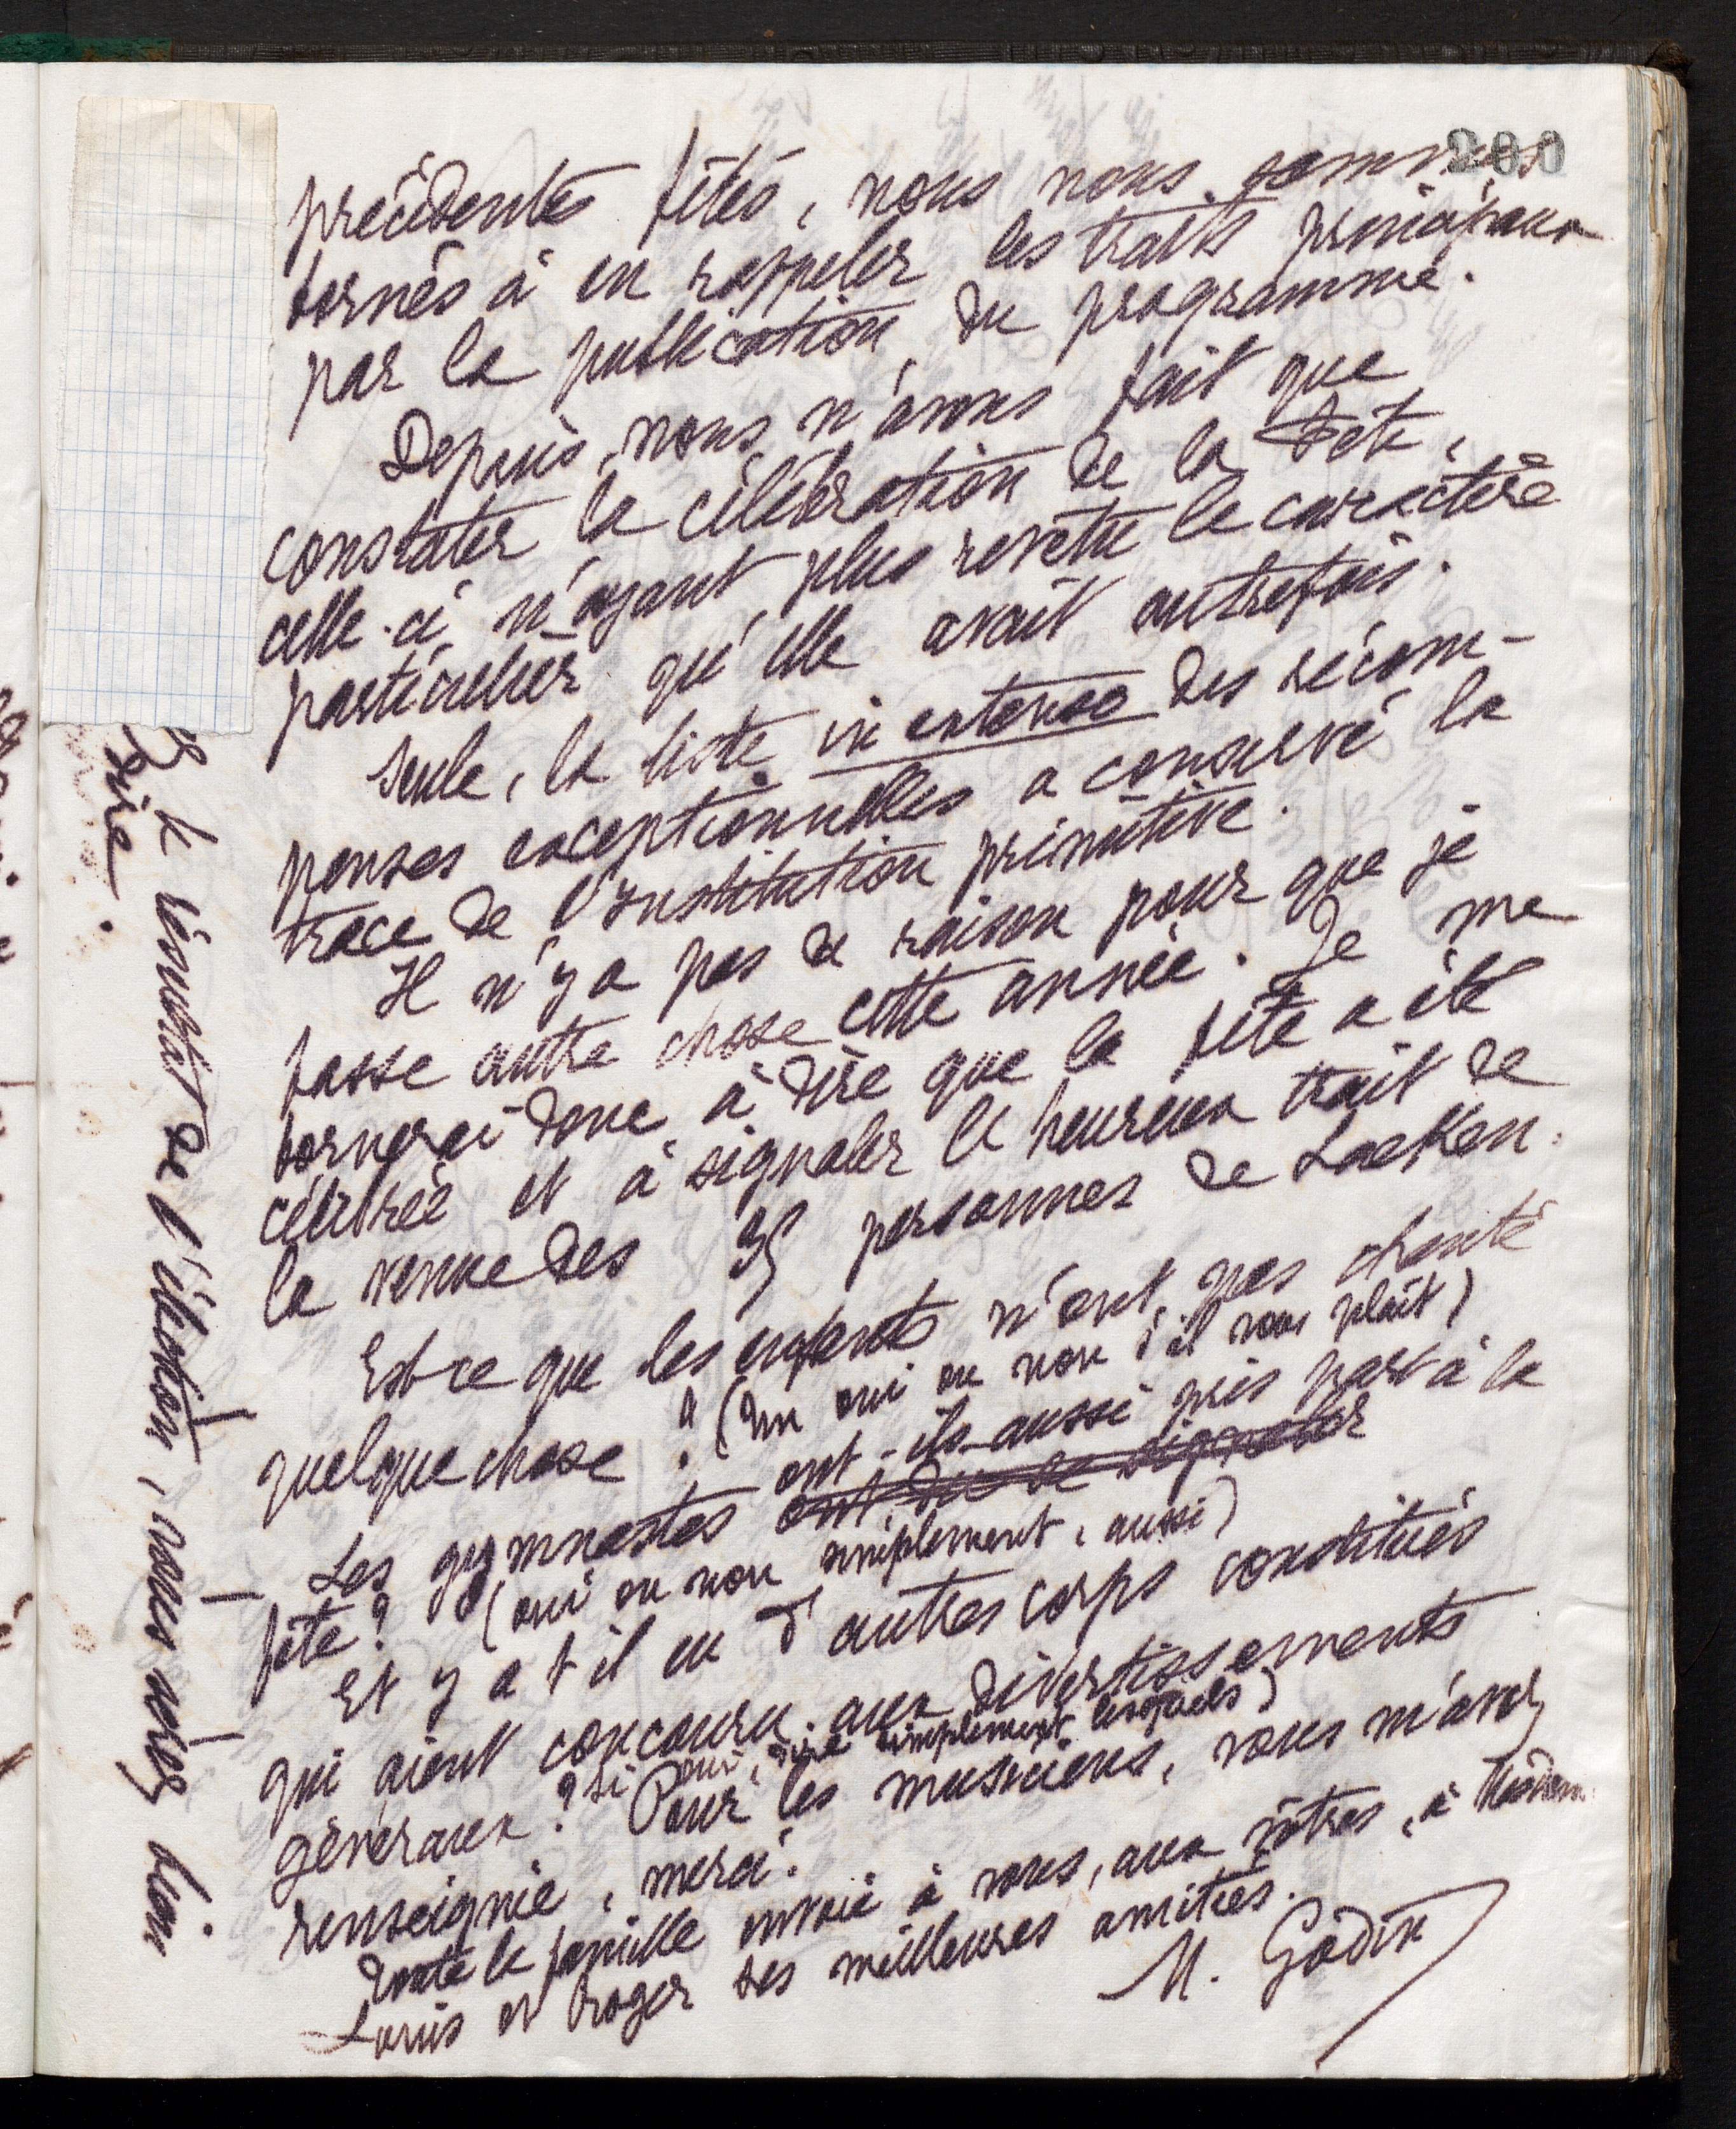 200
précédentes fêtes, nous nous sommes
bornés à en rappeler les traits principaux
par la publication du programme.
Depuis, nous n'avons fait que
constater la célébration de la Fête,
celle-ci n'ayant plus revêtu le caractère
particulier qu'elle avait autrefois.
Seule, la liste in extenso des récom-
penses exceptionnelles a conservé la
trace de l'Institution primitive.
Il n'y a pas de raison pour que je
fasse autre chose cette année. Je me
bornerai donc à dire que la fête a été
célébrée et à signaler l'heureux trait de
la venue des 35 personnes de Laeken.
Est-ce que les enfants n'ont pas chanté
quelque chose ? (un oui ou non s'il vous plaît)
ont-ils aussi pris part à la
Les gymnastes ont dû se signaler
fête ? (oui ou non simplement, aussi)
Et y a t il eu d'autres corps constitués
qui aient concouru aux divertissements
généraux ? Si oui, dire simplement lesquels)
Pour les musiciens, vous m'avez
renseignée, merci.
Toute la famille envoie à vous, aux vôtres, à Madame
Louis et Roger ses meilleures amitiés.
M. Godin
Et le résultat de l'élection, vous serez bien
dire.